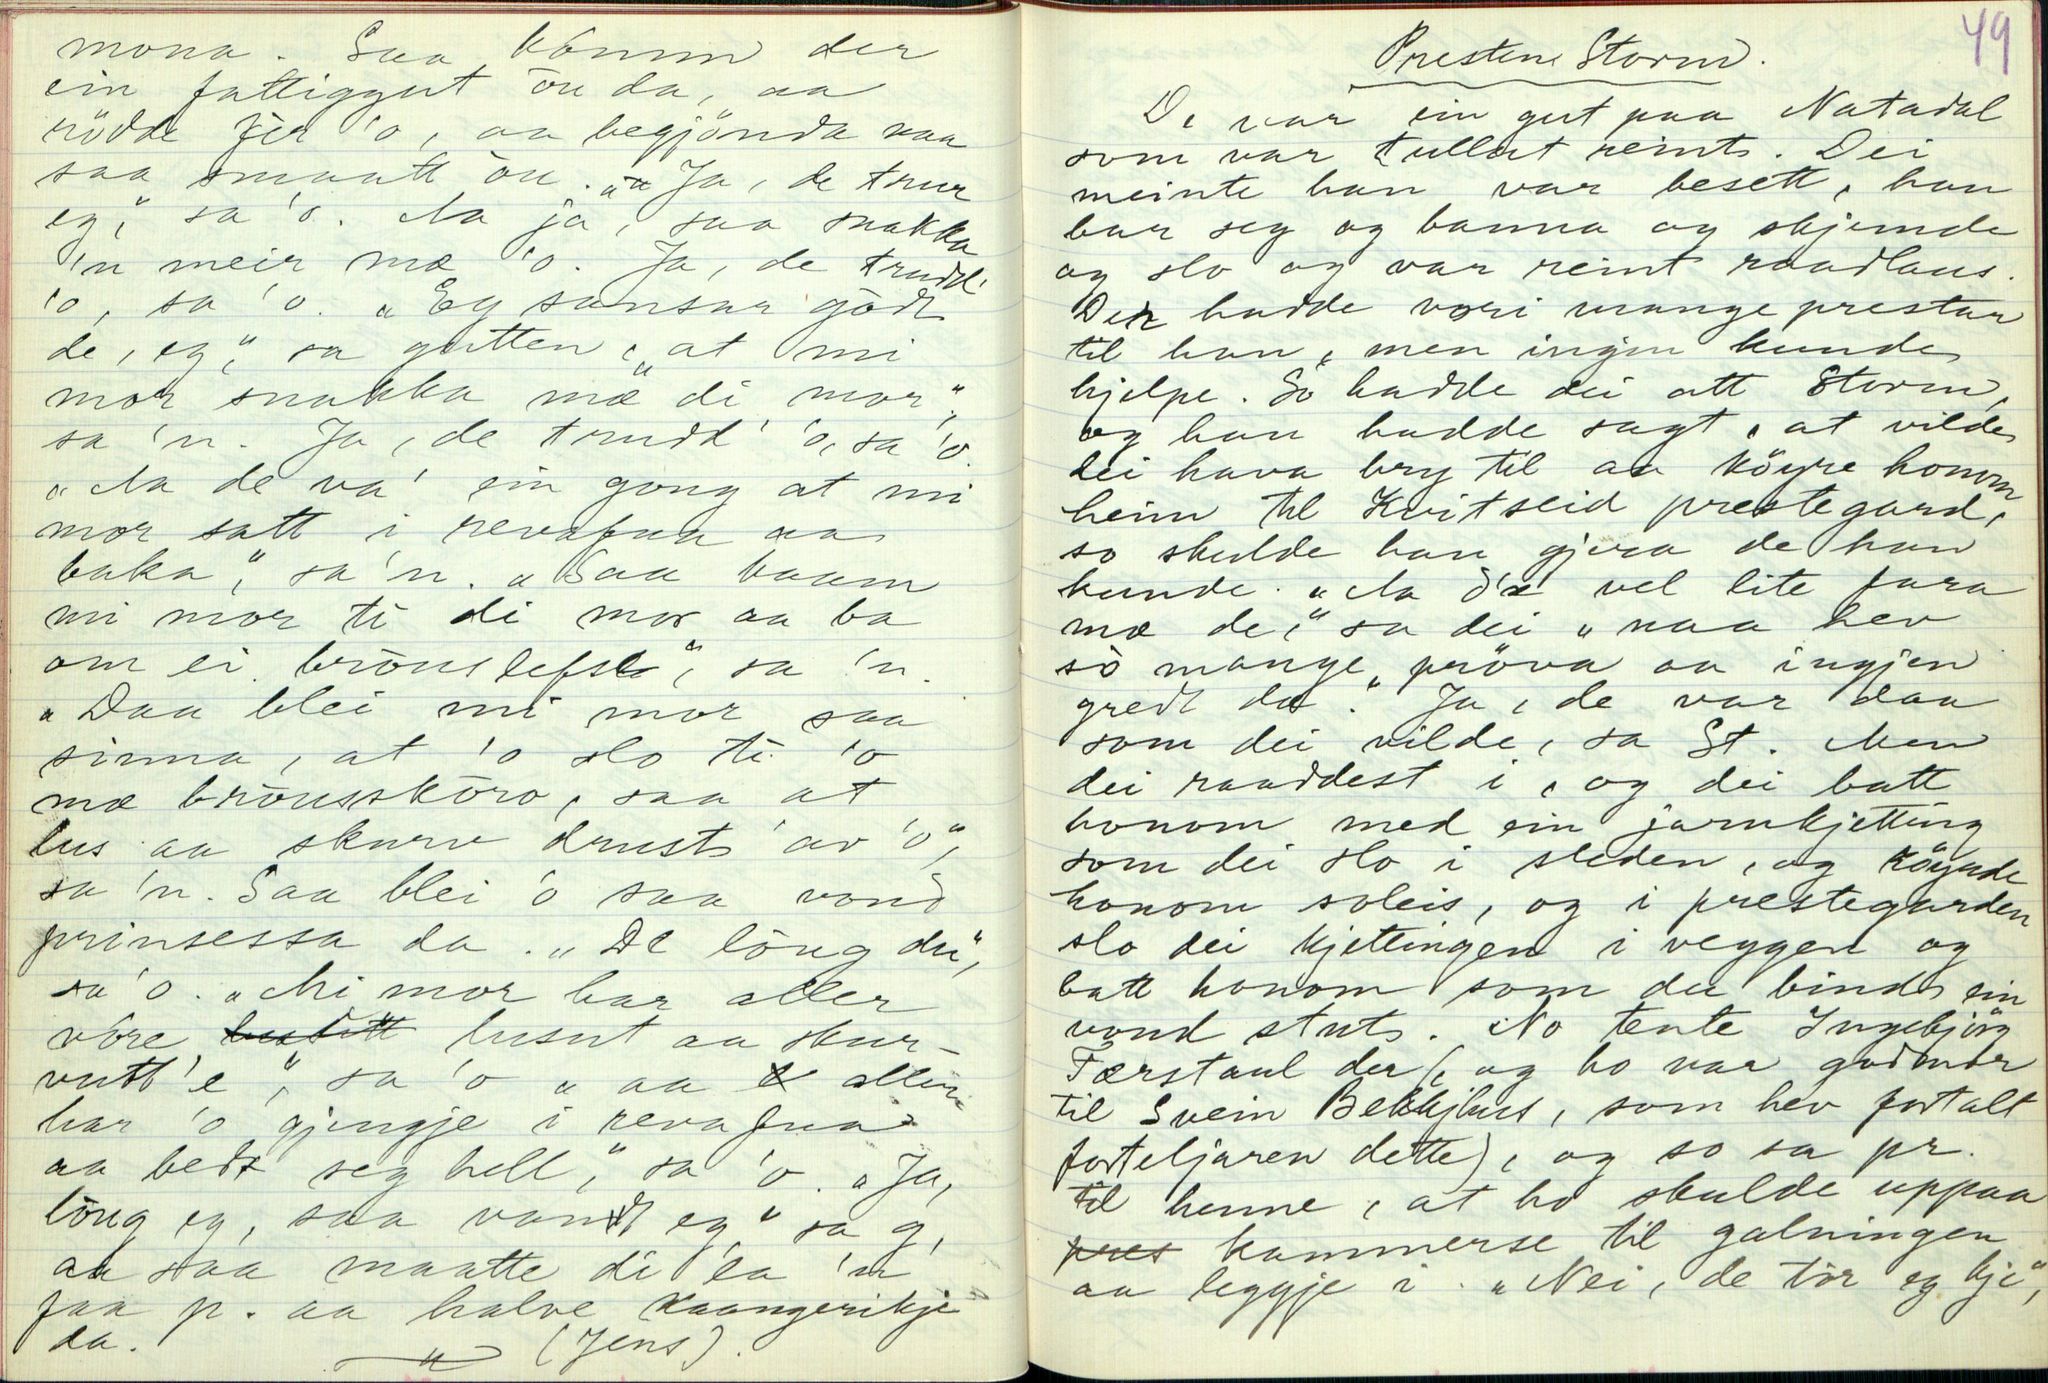 mona. Saa kömm der
ein fattiggut ön da, aa
rödde fèr 'o, aa begjönda naa
saa smaatt ön. „Ja, de trur
eg," sa 'o. Aa ja, saa snakka
'n meir mæ 'o. Ja, de trudd'
'o, sa 'o. „Eg sansar gödt
de, eg," sa gutten, „at mi
mor snakka mæ di mor",
sa 'n. Ja, de trudd' 'o, sa 'o.
„Aa de va' ein gong at mi
mor satt i revafua aa
baka," sa 'n. „Saa kaam
mi mor ti di mor aa ba
om ei brönslefse", sa 'n.
„Daa blei mi mor saa
sinna, at 'o slo ti 'o
mæ brönssköro, saa at
lus aa skurv drust av 'o",
sa 'n. Saa blei 'o saa vond
prinsessa da. „De löug du",
sa 'o. „Mi mor har aller
vöre lusut aa skur-
vutt 'e", sa 'o „aa aller
har 'o gjengje i revafua
aa bedt seg hell," sa 'o. „Ja,
löug eg, saa vandt eg" sa g,
aa saa maatte di la 'n
faa p. aa halve kaangerikje
da.
(Jens).
49
Presten Storm.
De var ein gut paa Natadal
som var tullut reint. Dei
meinte han var besett, han
bar seg og banna og skjemde
og slo og var reint raadlaus.
Der hadde vori mange prestar
til han, men ingjen kunde
hjelpe. So hadde dei att Storm,
og han hadde sagt, at vilde
dei hava bry til aa köyre honom
heim til Kvitseid prestegard,
so skulde han gjera de han
kunde. „Aa d'æ vel lite fara
mæ de," sa dei „naa hev
sò mange pröva aa ingjen
gredt da". Ja, de var daa
som dei vilde, sa St. Men
dei raaddest i, og dei batt
honom med ein jarnkjetting
som dei slo i sleden, og köyrde
honom soleis, og i prestegarden
slo dei kjettingen i veggen og
batt honom som du bind ein
vond stut. No tente Ingebjörg
Færstaul der (og ho var godmor
til Svein Bekkjhus, som hev fortalt
forteljaren dette), og so sa pr.
til henne, at ho skulde uppaa
kammerse til galningen
aa leggje i. „Nei, de tòr eg kje",